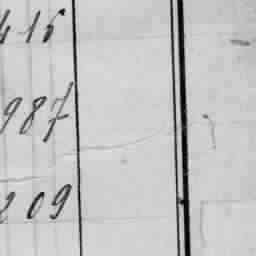 416
987
209